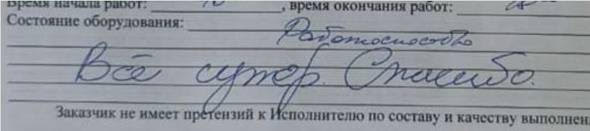 Время начала работ: , время окончания работ:
Состояние оборудования:
Всё супер. Спасибо.
Заказчик не имеет претензий к Исполнителю по составу и качеству выполнен